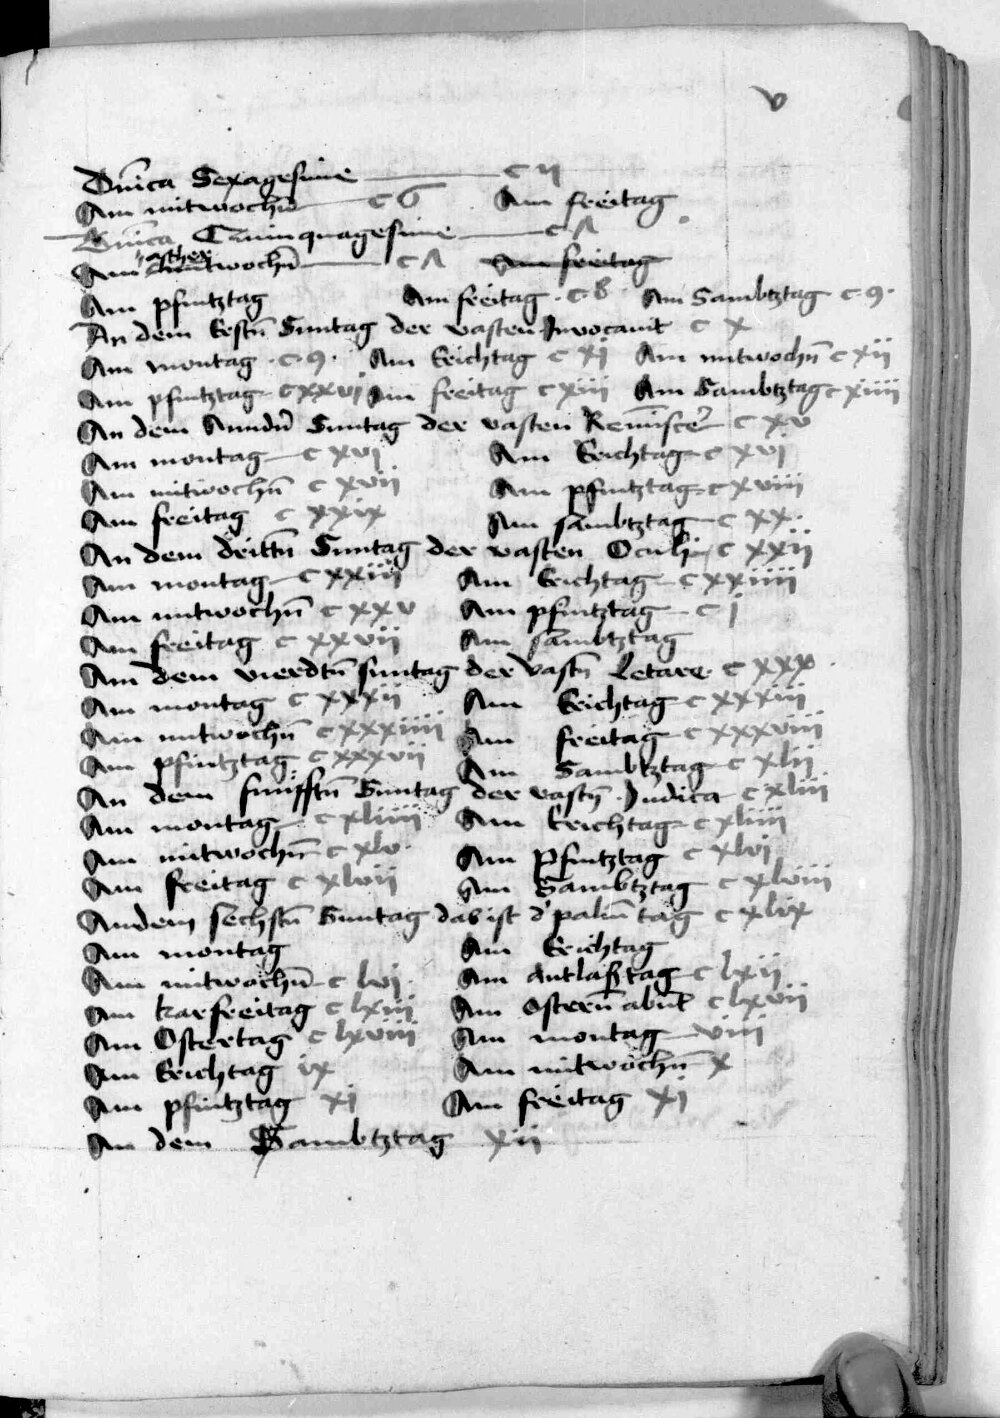 v
Dnica Sexagesime c ii
Am mitwochn c 6 Am freitag
Dnica Quinquagesime c Λ
Am ascher mitwochn c Λ Am freitag
Am pfintztag Am freitag c 8 Am Sambtztag c 9
An dem Erstn Suntag der vasten Invocavit c x
Am montag c 9 Am Erichtag c xi Am mitwochn c xii
Am pfintztag c xxvi Am freitag c xiii Am Sambtztag c xiiii
An dem Anndn Suntag der vasten Reminiscer c xv
Am montag c xvi Am Erichtag c xvi
Am mitwochn c xvii Am pfintztag c xviii
Am freitag c xxix Am sambtztag c xx
An dem drittn Suntag der vasten Oculi c xxii
Am montag c xxiii Am Erichtag c xxiiii
Am mitwochn c xxv Am pfintztag c i
Am freitag c xxvii Am sambtztag
Am dem vierdtn suntag der vastn letare c xxx
Am montag c xxxii Am Erichtag c xxxiii
Am mitwochn c xxxiiii Am freitag c xxxviii
Am pfintztag c xxxvii Am Sambtztag c xlii
An dem funfftn Suntag der vastn Judica c xliii
Am montag c xliiii Am Erichtag c xliiii
Am mitwochn c xlv Am pfintztag c xlvi
Am freitag c xlvii Am Sambtztag c xlviii
Andem sechstn Suntag das ist d' palm tag c xlix
Am montag Am Erichtag
Am mitwochn c lvi Am Antlaßtag c lxii
Am karfreitag c lxiii Am Ostern abnt c lxvii
Am Ostertag c lxviii Am montag viii
Am Erichtag ix Am mitwochn x
Am pfintztag xi Am freitag xi
An dem Sambtztag xii